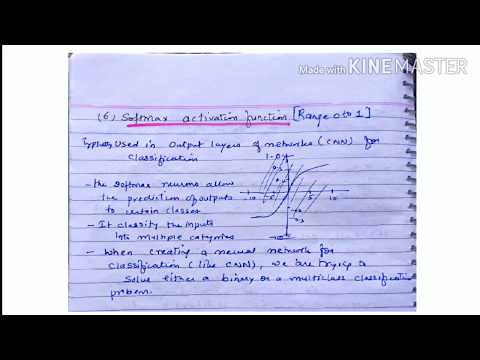 Made with KINEMASTER
(6) Softmax activation function [Range 0 to 1]
Typically Used in Output layers of networks (CNN) for
classification
- the softmax neurons allow
the prediction of outputs
to certain classes
- It classify the inputs
into multiple categories
- When creating a neural network for
classification (like CNN), we are trying to
solve either a binary or a multiclass classification
problem.
1.0
-10
-5
5
10